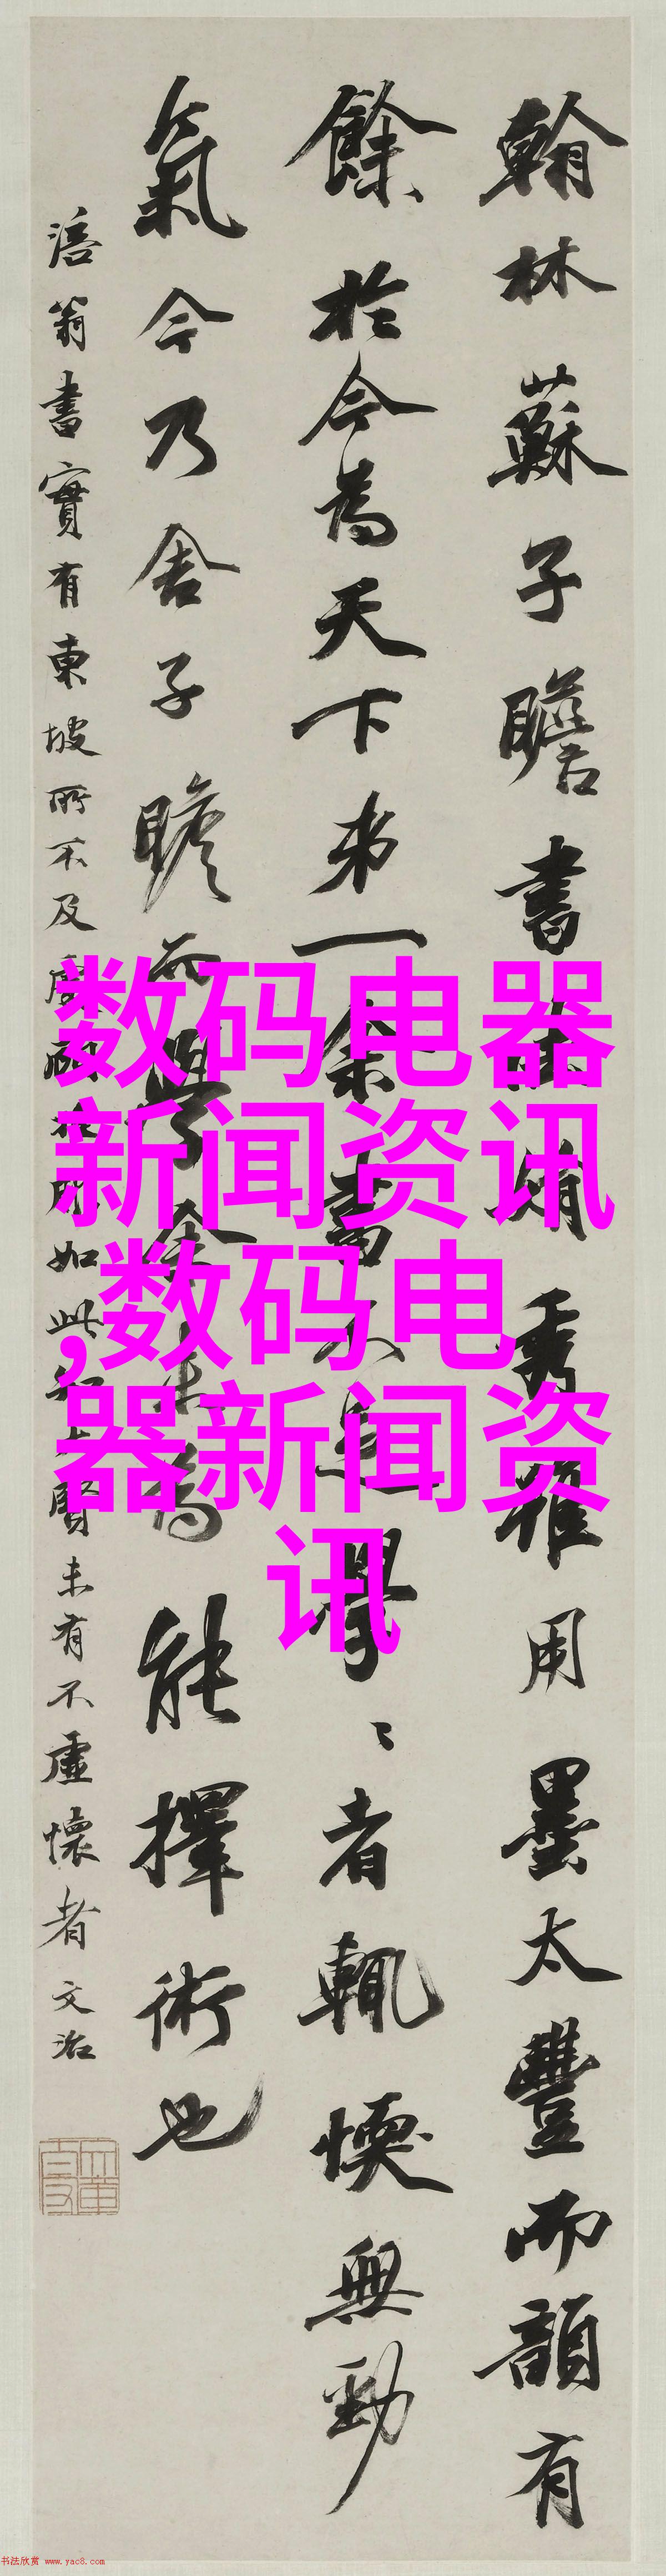 翰林蘇子瞻書法娟秀雖用墨太豐而韻有
餘於今為天下弟一余書不足學〻者輒愞無勁
氣今乃舍子瞻而學余未為能擇術也
涪翁書實有東坡所不及處如此知大賢未有不虛懷者文治
数码电器
新闻资讯
,数码电
器新闻资
讯
书法欣赏 www.yac8.com